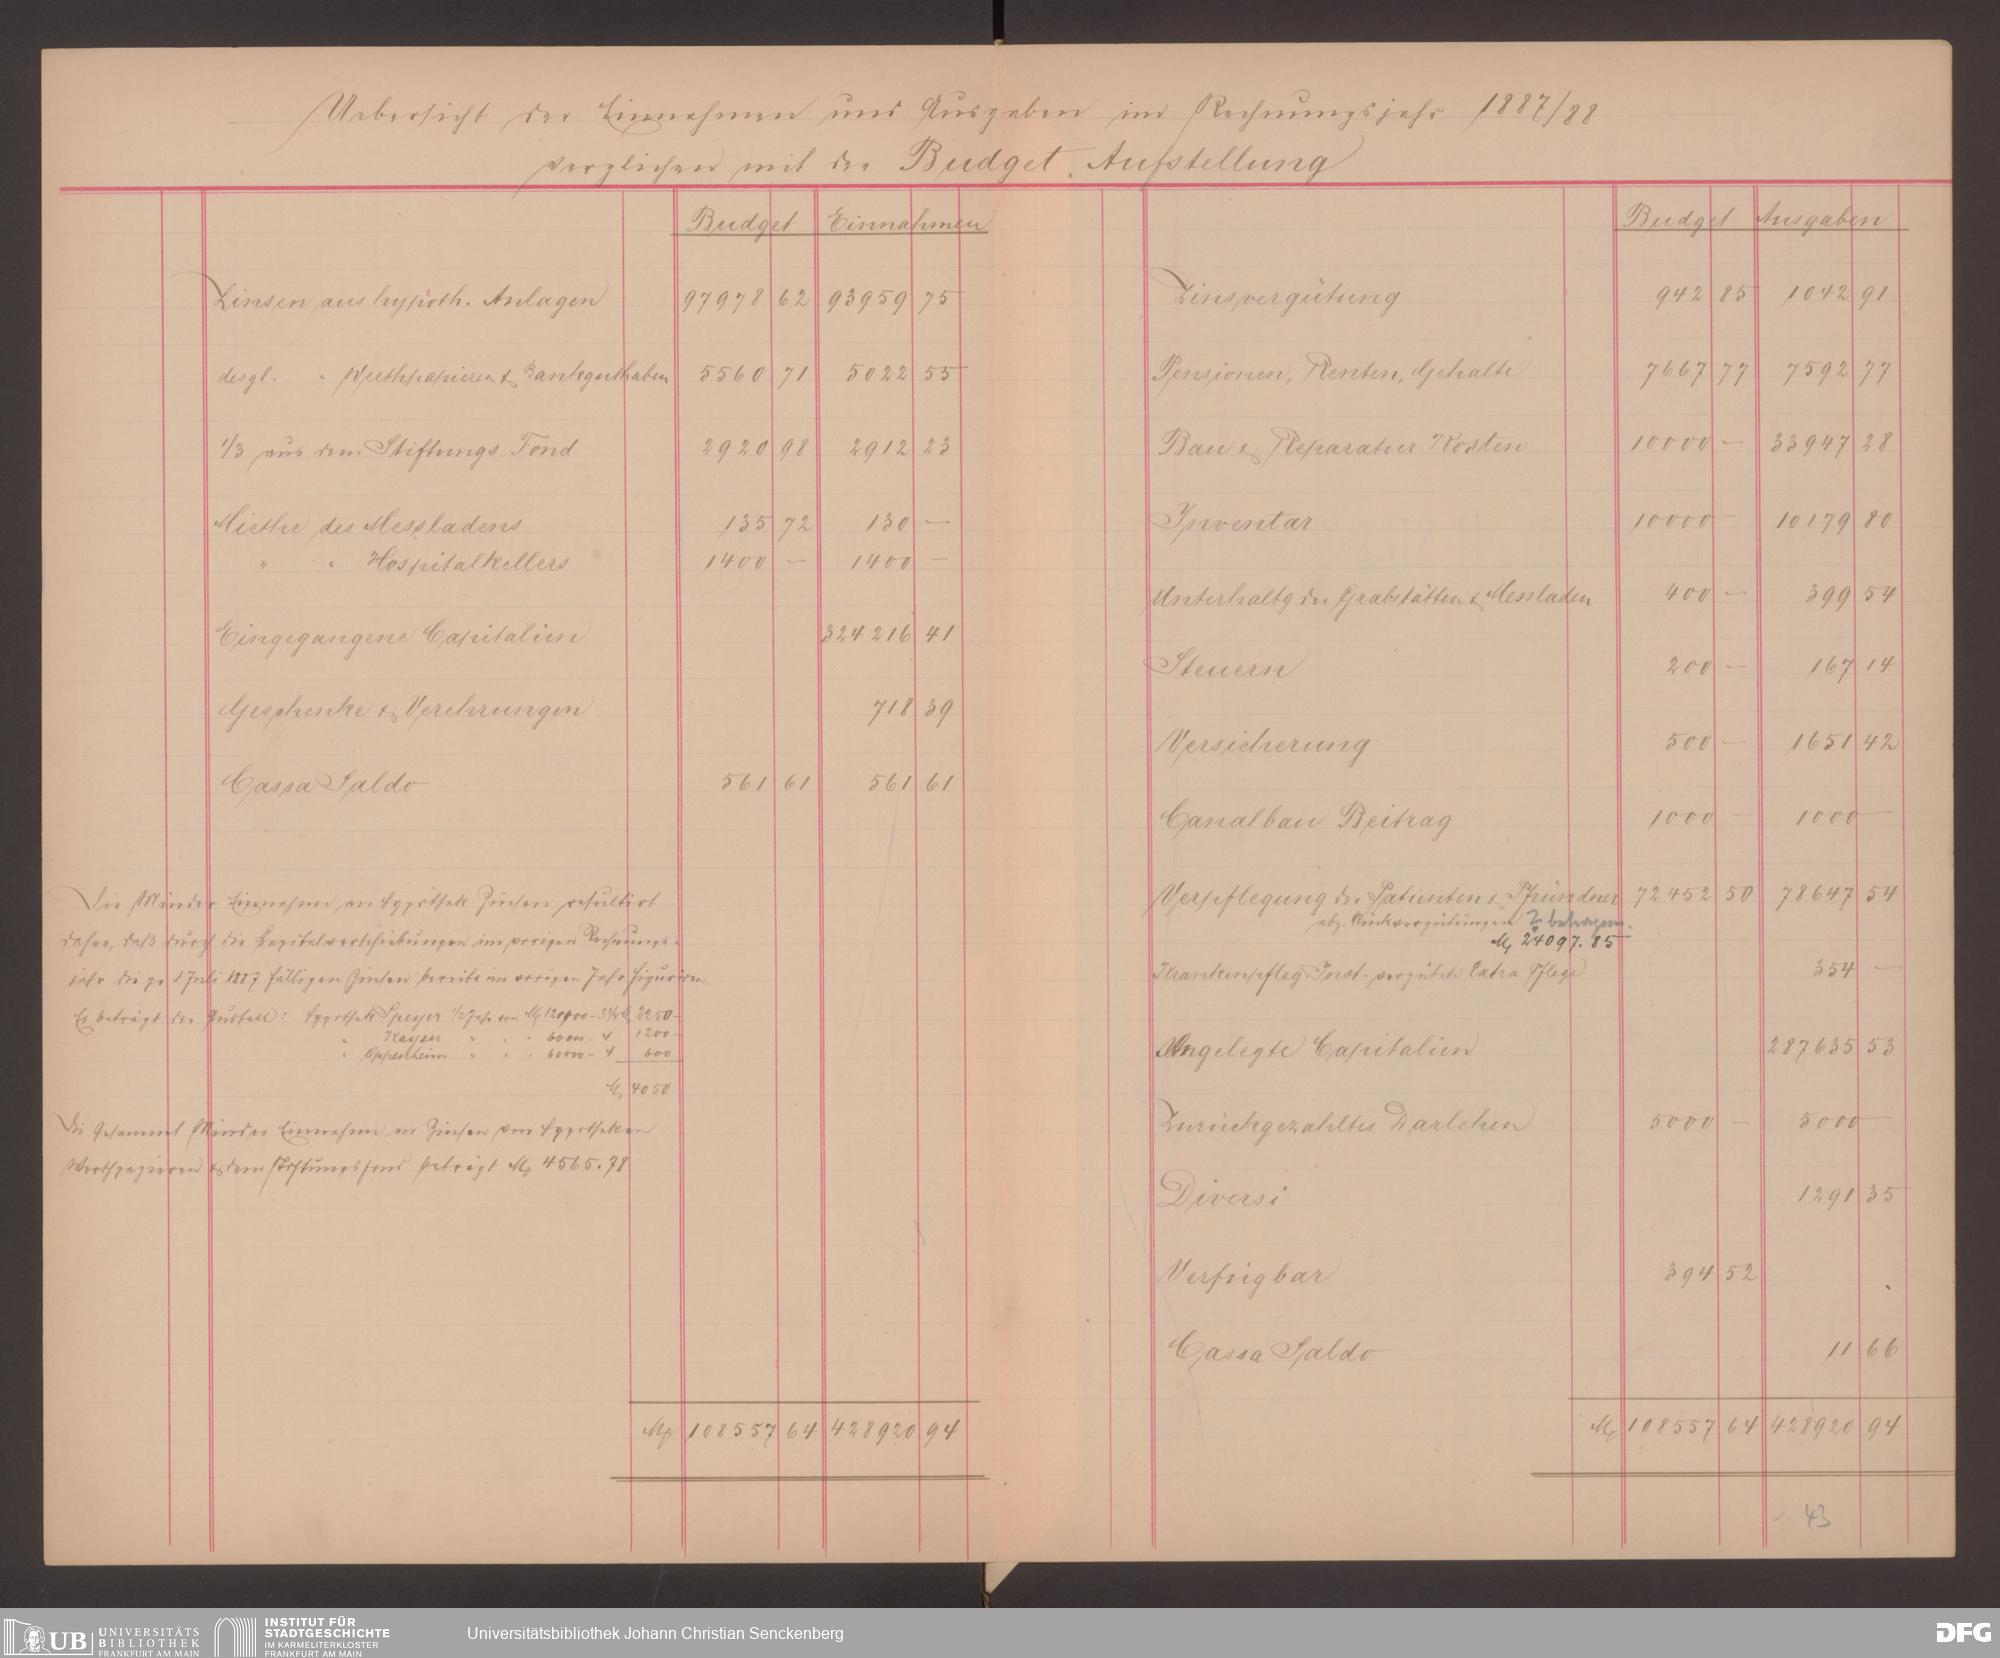 Uebersicht der Einnahmen und Ausgaben im Rechnungsjahr 1887/88
verglichen mit der Budget Aufstellung
Budget Einnahmen
Zinsen aus hypoth. Anlagen 97978 62 93959 75
desgl. " Werthpapieren & Bankguthaben 5560 71 5022 55
1/3 aus dem Stiftungs Fond 2920 98 2912 23
Miethe des Messladens 135 72 130 —
" " Hospitalkellers 1400 — 1400 —
Eingegangene Capitalien 324216 41
Geschenke & Verehrungen 718 39
Cassa Saldo 561 61 561 61
Die Minder Einnahme an Hypothek Zinsen resultirt
daher, daß durch die Capitalverschiebungen im vorigen Rechnungs-
jahr die pr 1 Juli 1887 fälligen Zinsen bereits im vorigen Jahr figuriren.
Es beträgt der Ausfall: Hypothek Speyer 1/2 Jahr von M 120000 – 3 3/4 M 2250 –
" Kayser " " " 60000 – 4 1200 –
" Oppenheim " " " 60000 – 4 600
M 4050
Die Gesammt Minder Einnahme an Zinsen von Hypotheken
Werthpapieren & dem Stiftungsfond beträgt M 4565.78
M 108557 64 428920 94
Budget Ausgaben
Zinsvergütung 942 85 1042 91
Pensionen, Renten, Gehalte 7667 77 7592 77
Bau & Reparatur Kosten 10000 — 33947 28
Inventar 10000 — 10179 80
Unterhaltg der Grabstätten & Messladen 400 — 399 54
Steuern 200 — 167 14
Versicherung 500 — 1651 42
Canalbau Beitrag 1000 — 1000 —
Verpflegung der Patienten & Pfründner 72452 50 78647 54
abz. Rückvergütungen betragen
M 24097.85
Krankenpfleg. Inst. vergütete Extra Pflege 354 —
Angelegte Capitalien 287635 53
Zurückgezahltes Darlehen 5000 — 5000 —
Diversi 1291 35
Verfügbar 394 52
Cassa Saldo 11 66
M 108557 64 428920 94
43
UB UNIVERSITÄTS
BIBLIOTHEK
FRANKFURT AM MAIN
INSTITUT FÜR
STADTGESCHICHTE
IM KARMELITERKLOSTER
FRANKFURT AM MAIN
Universitätsbibliothek Johann Christian Senckenberg
DFG